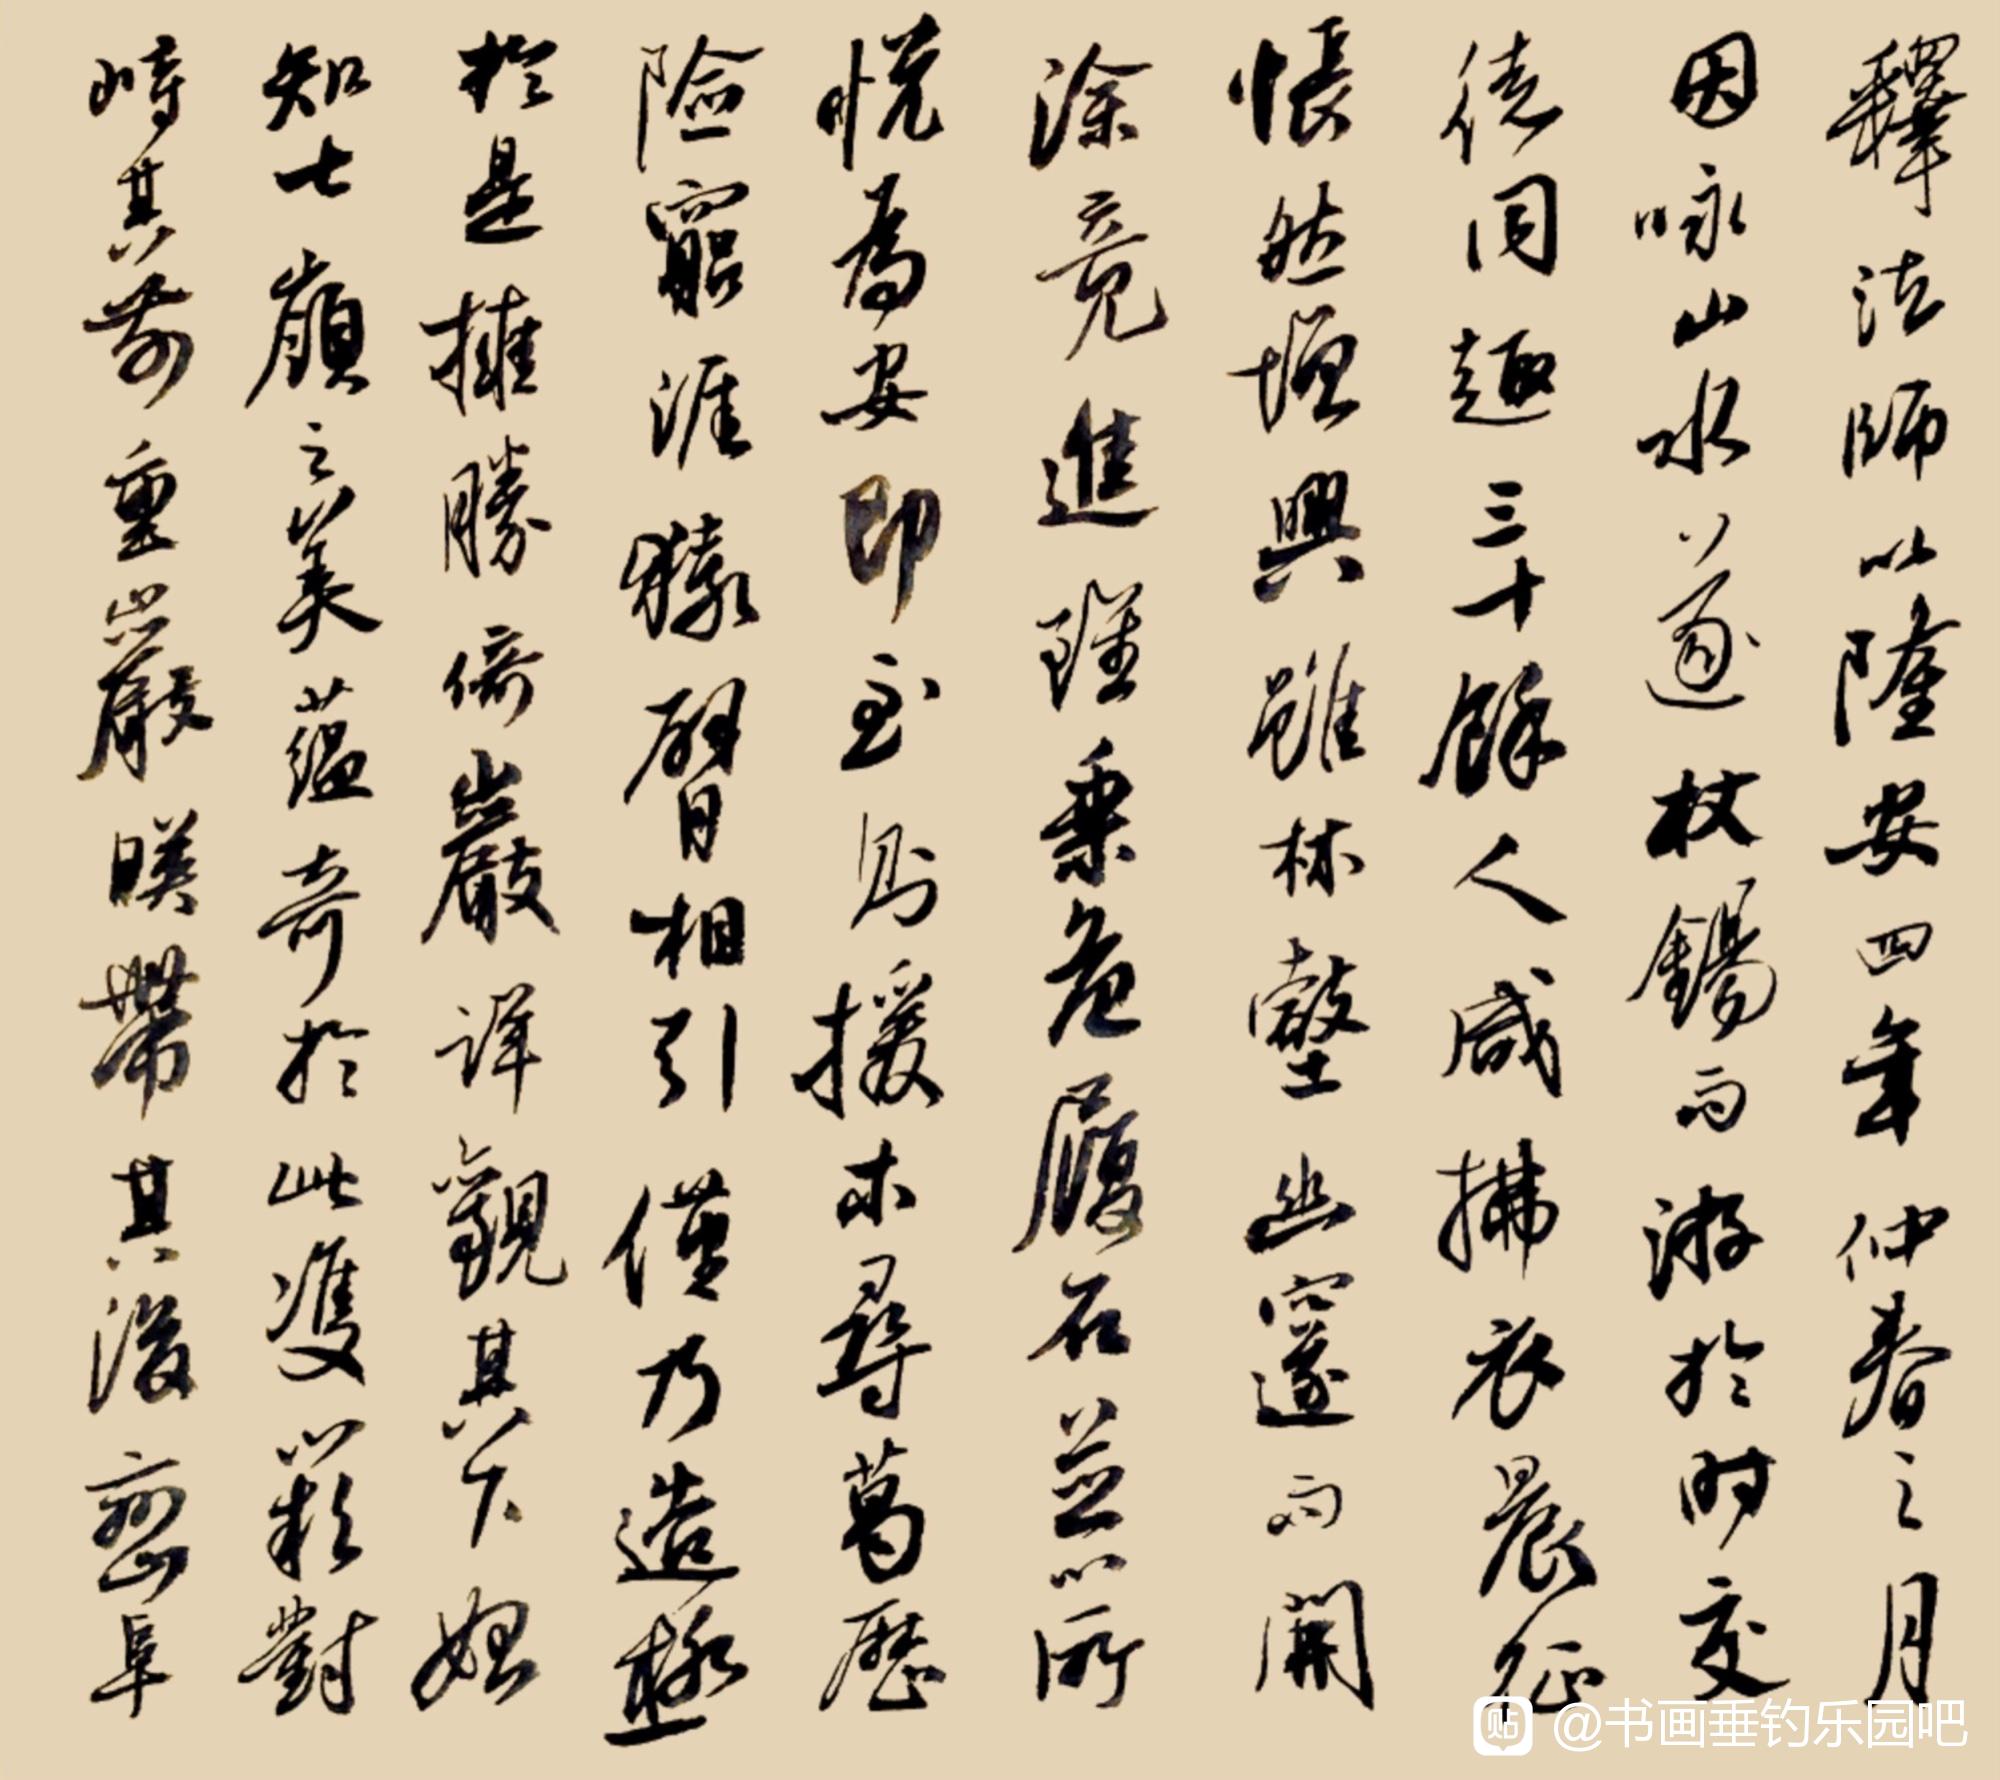 釋法師以隆安四年仲春之月
因咏山水遂杖錫而游於时交
徒同趣三十餘人咸拂衣晨征
悵然增興雖林壑幽邃而開
涂竟進雖乘危履石並以所
悦為安即至则援木尋葛歷
險窮涯猿臂相引僅乃造極
於是擁勝倚巖詳觀其下始
知七嶺之美蘊奇於此雙闕對
峙其前重巖映帶其後巒阜
贴 @书画垂钓乐园吧